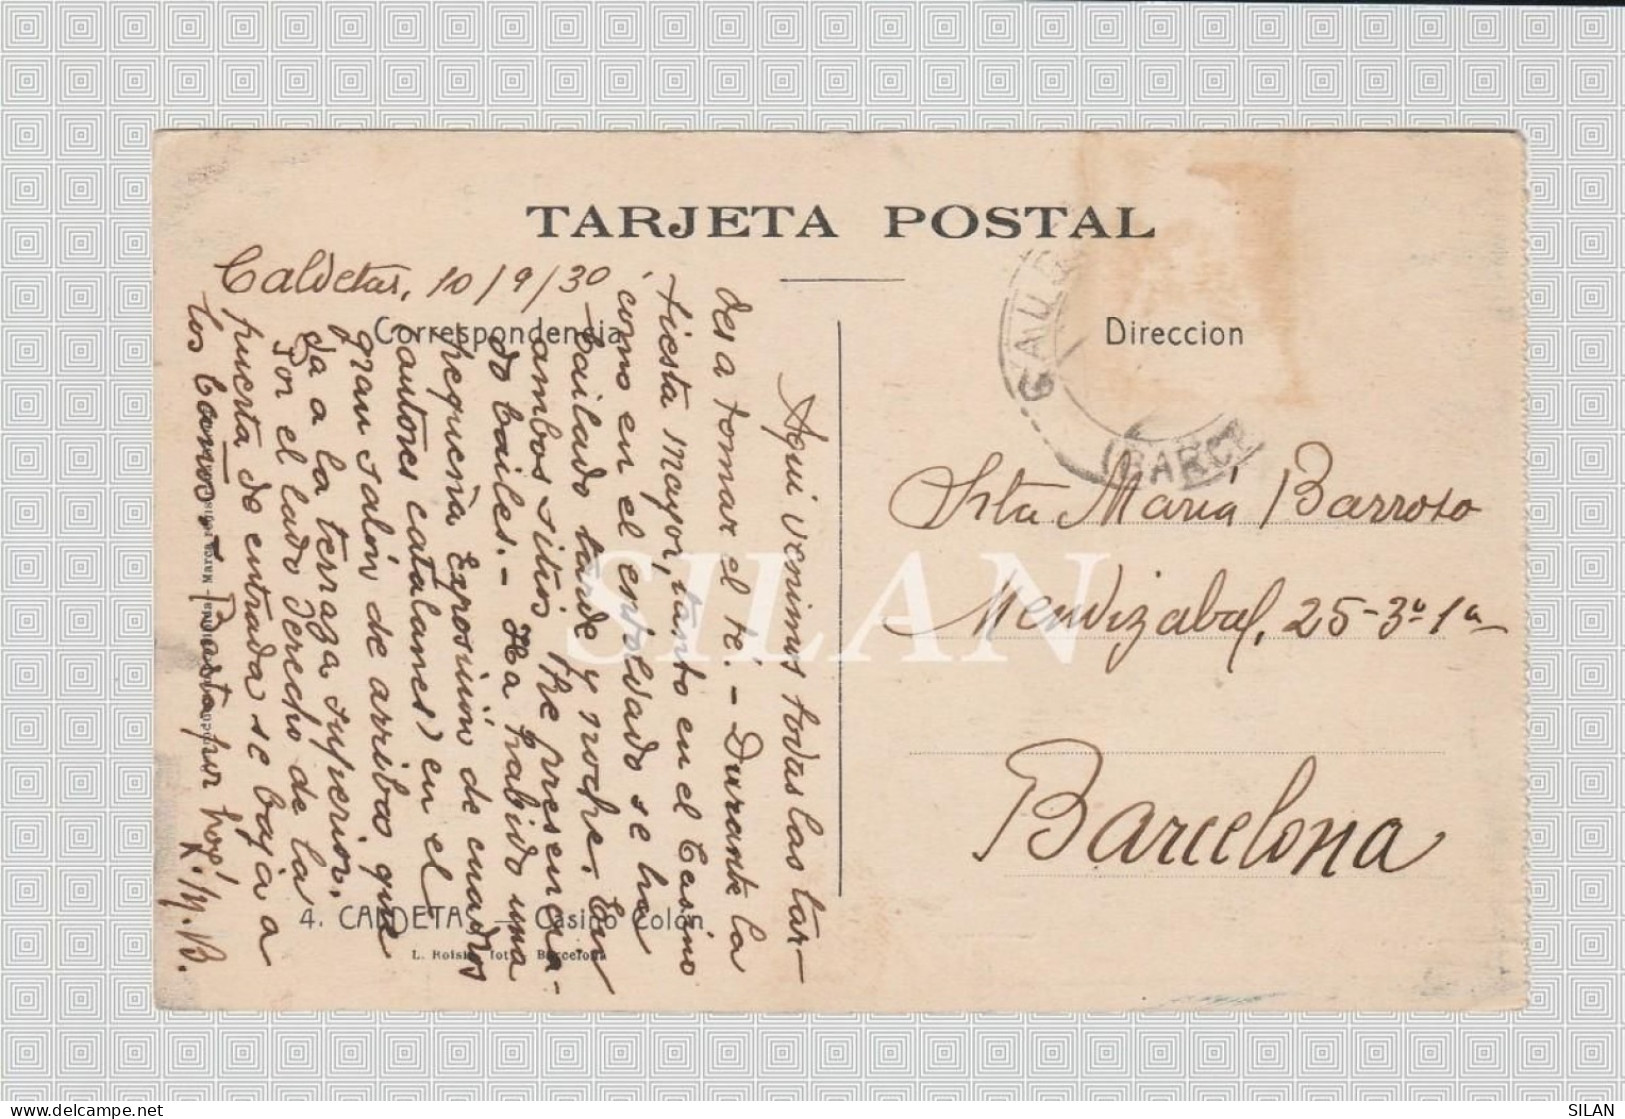 TARJETA POSTAL
Caldetas, 10/9/30
Correspondencia
Direccion
Aqui venimus todas las tar-
des a tomar el té. - Durante la
fiesta mayor, tanto en el Casino
como en el entoldado se ha
bailado tarde y noche. En
ambos sitios he presencia-
do bailes. - Ha habido una
pequeña Exposición de cuadros
(autores catalanes) en el
gran salón de arriba que
da a la terraza superior.
Por el lado derecho de la
puerta de entrada se baja a
los Basta por hoy
M. B.
Srta María Barroso
Mendizabal, 25-3º 1ª
Barcelona
CALD
(BARCE
4. CALDETAS — Casino Colón
L. Roisin, fot. — Barcelona
SILAN
www.delcampe.net
SILAN